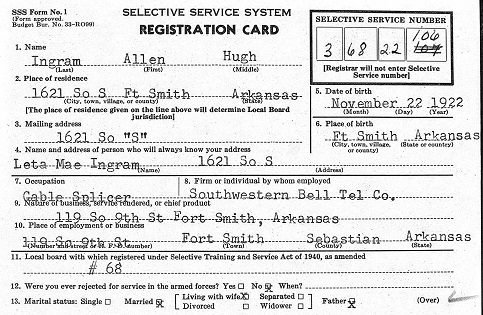 SSS Form No. 1
(Form approved.
Budget Bur. No. 33-RO99)
SELECTIVE SERVICE SYSTEM
REGISTRATION CARD
SELECTIVE SERVICE NUMBER
3 68 22 106
[Registrar will not enter Selective
Service number]
1. Name
Ingram Allen Hugh
(Last) (First) (Middle)
2. Place of residence
1621 So S Ft Smith Arkansas
(City, town, village, or county) (State)
[The place of residence given on the line above will determine Local Board
jurisdiction]
5. Date of birth
November 22 1922
(Month) (Day) (Year)
3. Mailing address
1621 So "S"
6. Place of birth
Ft Smith Arkansas
(City, town, village, or county) (State or country)
4. Name and address of person who will always know your address
Leta Mae Ingram 1621 So S
(Name) (Address)
7. Occupation
Cable Splicer
8. Firm or individual by whom employed
Southwestern Bell Tel Co.
9. Nature of business, service rendered, or chief product
119 So 9th St Fort Smith, Arkansas
10. Place of employment or business
119 So 9th St. Fort Smith Sebastian Arkansas
(Number and street or R. F. D. number) (City) (County) (State)
11. Local board with which registered under Selective Training and Service Act of 1940, as amended
# 68
12. Were you ever rejected for service in the armed forces? Yes ☐ No ☒ When?
13. Marital status: Single ☐ Married ☒ Living with wife ☒ Separated ☐ Divorced Widower ☐ Father ☒ (Over)